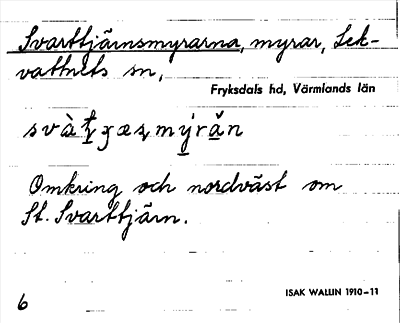 Svarttjärnsmyrarna, myrar, Lek-
vattnets sn,
Fryksdals hd, Värmlands län
Omkring och nordväst om
St. Svarttjärn.
ISAK WALLIN 1910-11
6